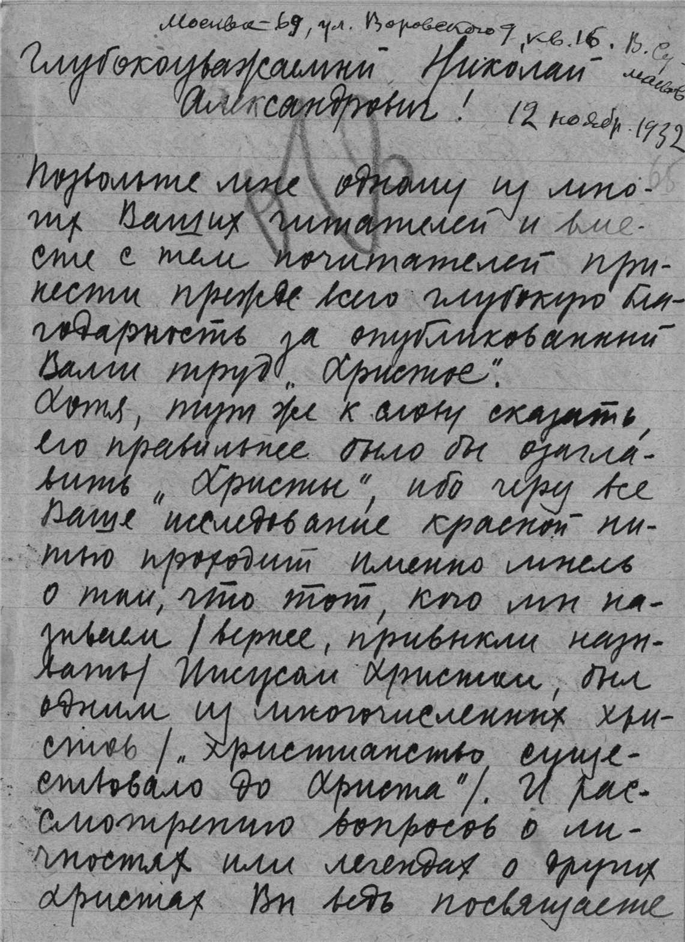 Москва-69, ул. Воровского 9, кв. 16. В. Су-
маков
Глубокоуважаемый Николай
Александрович!
12 ноябр. 1932
68
Позвольте мне одному из мно-
гих Ваших читателей и вме-
сте с тем почитателей при-
нести прежде всего глубокую бла-
годарность за опубликованный
Вами труд „Христос".
Хотя, тут же к слову сказать,
его правильнее было бы озагла-
вить „Христы", ибо через все
Ваше исследование красной ни-
тью проходит именно мысль
о том, что тот, кого мы на-
зываем /вернее, привыкли назы-
вать/ Иисусом Христом, был
одним из многочисленных хри-
стов /„христианство суще-
ствовало до Христа"/. И рас-
смотрению вопросов о ли-
чностях или легендах о других
христах Вы ведь посвящаете